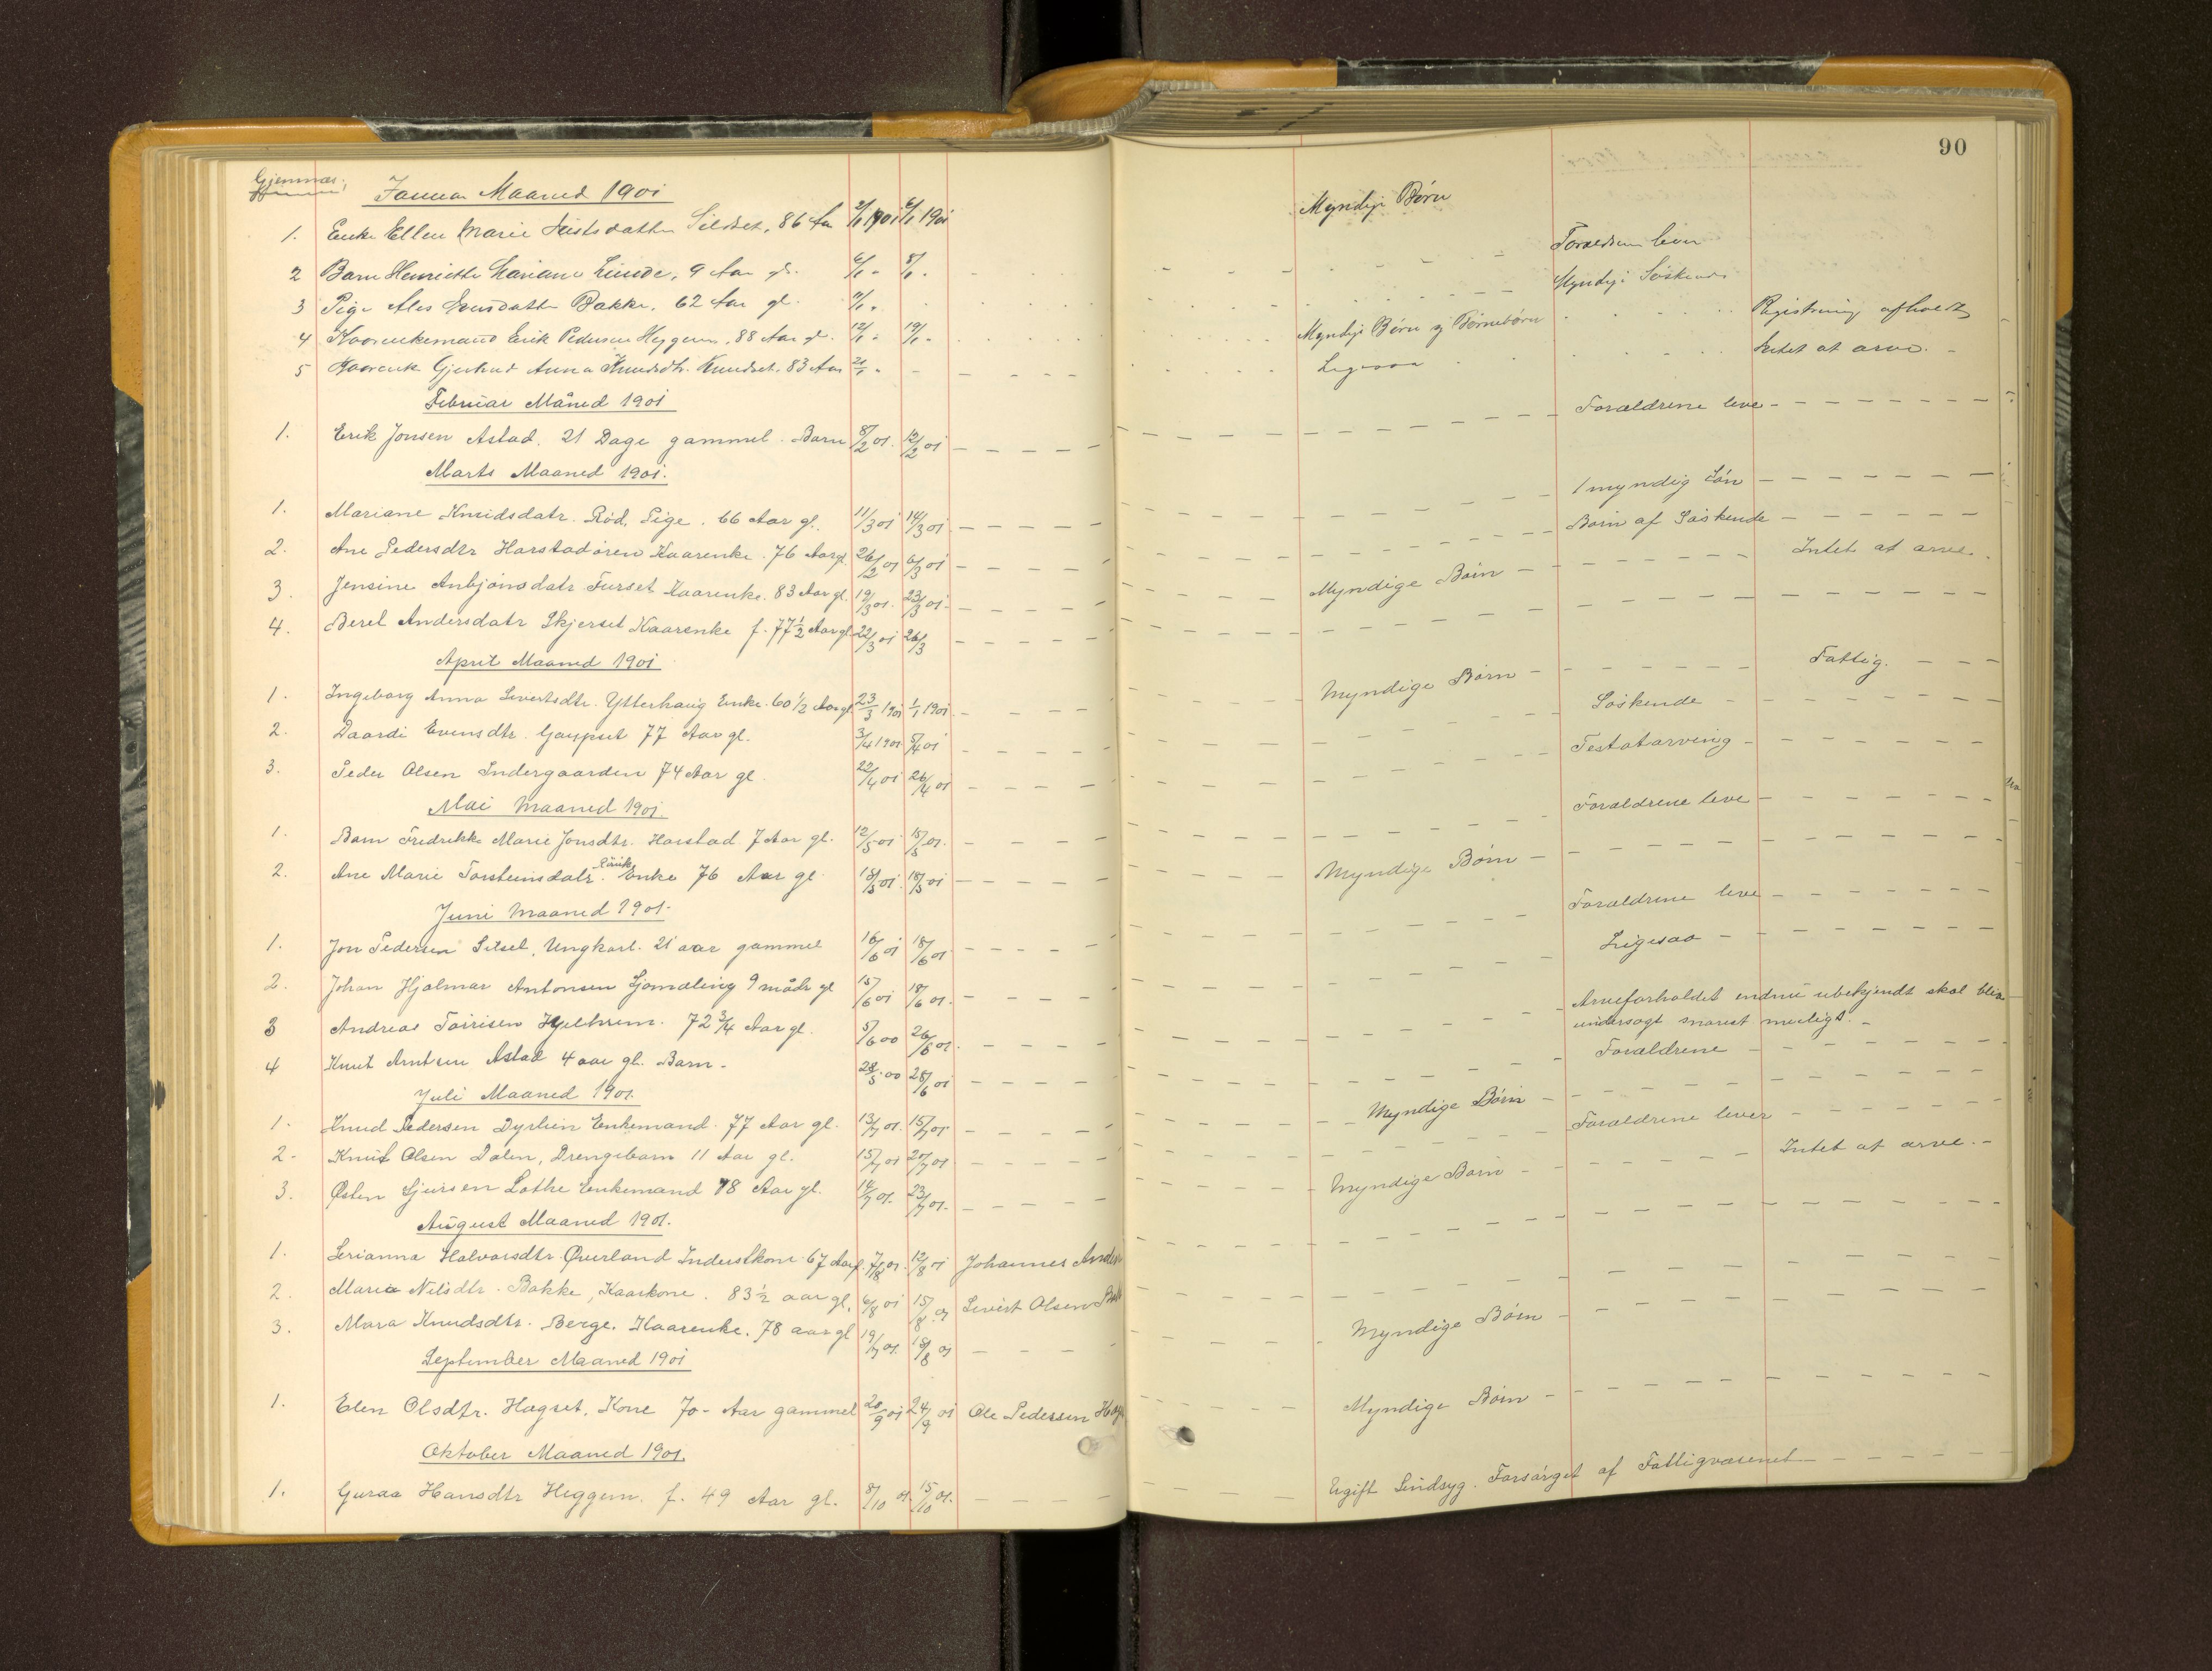 90
Gjemnæs.
Januar Maaned 1901
1. Enke Ellen Marie Silset, 86 Aar 2/1 1901 6/1 1901 Myndige Børn
2 Barn Henriette Mariane Lunde, 9 Aar gl. 6/1 - 8/1 - Forældrene lever
3 Pige Ales Bakke, 62 Aar gl. Myndige Søskende
4 Kaarenkemand Erik Pedersen Heggem, 88 Aar gl. 12/1 - 19/1 - Myndige Børn og Børnebørn Registrering afholdt
5 Kaarenke Gjertrud Anna Knudsdtr. Knudset, 83 Aar 20/1 - Ligesaa Intet at arve. -
Februar Måned 1901
1. Erik Jonsen Astad. 21 Dage gammel. Barn 8/2 01. 12/2 01 Forældrene leve
Marts Maaned 1901.
1. Mariane Knudsdatr. Rød, Pige. 66 Aar gl. 11/3 01 14/3 01 1 myndig Søn
2. Ane Pedersdtr Harstadøren Kaarenke. 76 Aar gl. 26/2 01 6/3 01 Børn af Søskende
3. Jensine Anbjønsdatr Furset Kaarenke. 83 Aar gl. 19/3 01. 23/3 01. Myndige Børn Intet at arve.
4. Beret Andersdatr Skjerset Kaarenke f. 77 1/2 Aar gl. 22/3 01 26/3
April Maaned 1901
1. Ingeborg Anna Sivertsdtr. Ytterhaug Enke. 60 1/2 Aar gl. 23/3 1901 1/1 1901 Myndige Børn Fattig.
2. Daardi Evensdtr. Gaupset 77 Aar gl. 3/4 1901. 8/4 01 Søskende
3. Peder Olsen Indergaarden 74 Aar gl. 22/4 01 26/4 01 Testatarving
Mai Maaned 1901.
1. Barn Fredrikke Marie Jonsdtr. Harstad 7 Aar gl. 12/5 01 15/5 01. Forældrene leve
2. Ane Marie Torsteinsdatr. Enke 76 Aar gl. 18/5 01 Myndige Børn
Juni Maaned 1901.
1. Jon Pedersen Silset, Ungkarl. 21 aar gammel 16/6 01 18/6 01 Forældrene leve
2. Johan Hjalmar Antonsen Gjømæling 9 mådr gl 15/6 01 18/6 01. Ligesaa
3 Andreas Hjelhrem. 72 3/4 Aar gl. 5/6 00 26/6 01. Arveforholdet endnu ubekjendt skal blive
undersøgt snarest muligt. -
4 Knut Arntsen Astad 4 aar gl. Barn. 28/5 00 28/6 01 Forældrene
Juli Maaned 1901.
1. Knud Pedersen Dyrlien Enkemand. 77 Aar gl. 13/7 01. 15/7 01 Myndige Børn
2. Knut Olsen Dalen, Drengebarn 11 Aar gl. 15/7 01 20/7 01 Forældrene lever
3. Østen Sjursen Lothe Enkemand 78 Aar gl. 14/7 01. 23/7 01. Myndige Børn Intet at arve. -
August Maaned 1901.
1. Serianna Halvorsdtr. Øverland Inderstkone 67 Aar gl. 7/8 01. 12/8 01 Johannes
2. Maria Nilsdtr. Bakke, Kaarkone. 83 1/2 aar gl. 6/8 01 15/8 01 Sivert Olsen
3. Mara Knudsdtr. Berge. Kaarenke. 78 aar gl 19/7 01. 18/8 01 Myndige Børn
September Maaned 1901
1. Elen Olsdtr. Hagset, Kone 70 - Aar gammel 20/9 01 24/9 01 Ole Pedersen Myndige Børn
Oktober Maaned 1901.
1. Guraa Hansdtr Heggem. f. 49 Aar gl. 8/10 01. 15/10 01. Ugift Sindsyg. Forsørget af Fattigvæsenet